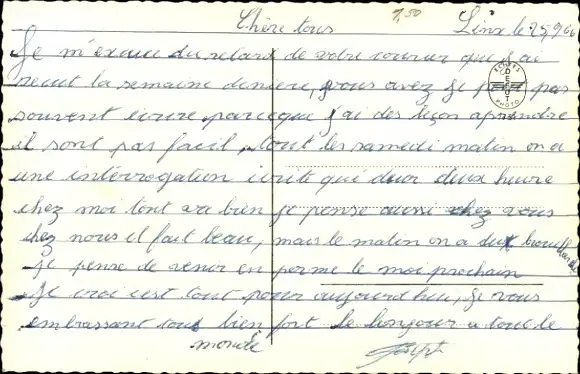 7,50
Chère tous Linx le 25,9,60
Je m'excuse du retard de votre courier que j'ai
recut la semaine dernière, vous avez je pas
souvent écrire parceque j'ai des leçon aprendre
il sont pas facil, tout les samedi matin on a
une intérrogation écrite qui dur deux heure
chez moi tout va bien je pense aussi chez vous
chez nous il fait beau, mais le matin on a du brouillard
je pense de venir en perme le moi prochain
Je croi c'est tout pour aujourd'hui, Je vous
embrassant tous bien fort le bonjour a tout le
monde Joseph